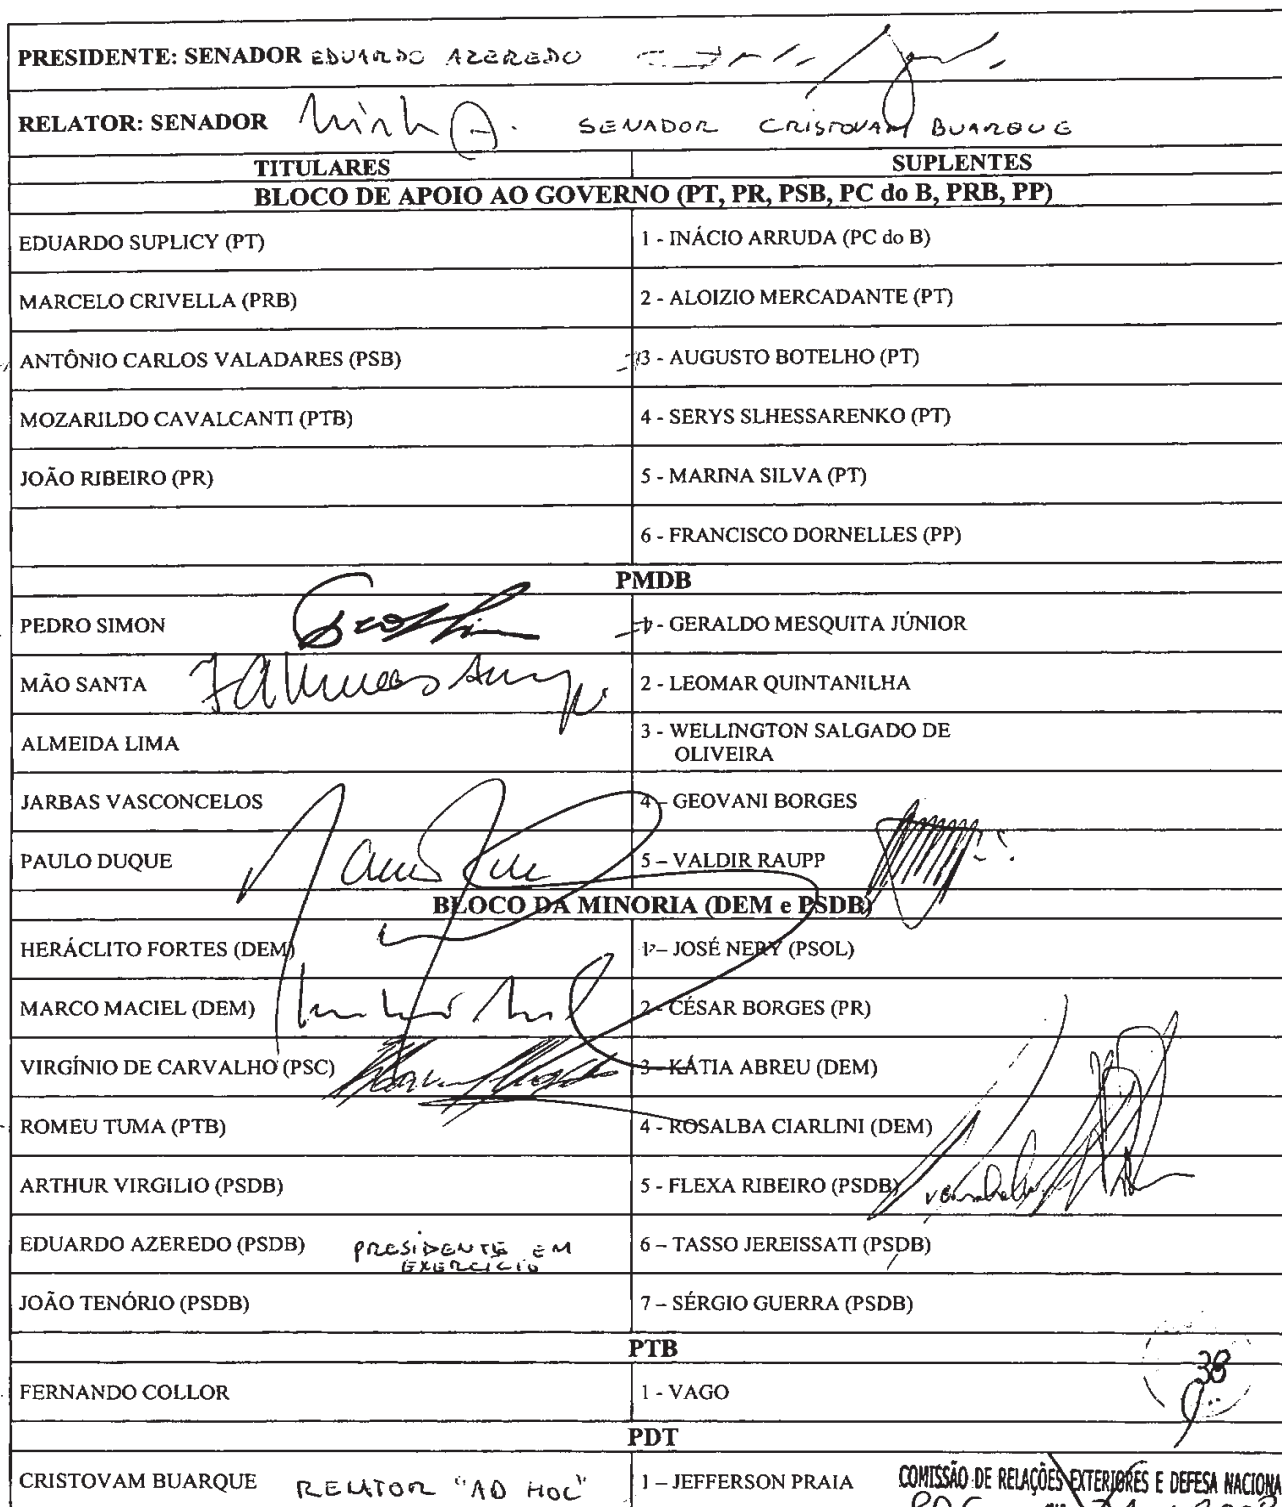 PRESIDENTE: SENADOR EDUARDO AZEREDO
RELATOR: SENADOR SENADOR CRISTOVAM BUARQUE
TITULARES SUPLENTES
BLOCO DE APOIO AO GOVERNO (PT, PR, PSB, PC do B, PRB, PP)
EDUARDO SUPLICY (PT) 1 - INÁCIO ARRUDA (PC do B)
MARCELO CRIVELLA (PRB) 2 - ALOIZIO MERCADANTE (PT)
ANTÔNIO CARLOS VALADARES (PSB) 3 - AUGUSTO BOTELHO (PT)
MOZARILDO CAVALCANTI (PTB) 4 - SERYS SLHESSARENKO (PT)
JOÃO RIBEIRO (PR) 5 - MARINA SILVA (PT)
6 - FRANCISCO DORNELLES (PP)
PMDB
PEDRO SIMON 1 - GERALDO MESQUITA JÚNIOR
MÃO SANTA 2 - LEOMAR QUINTANILHA
ALMEIDA LIMA 3 - WELLINGTON SALGADO DE
OLIVEIRA
JARBAS VASCONCELOS 4 – GEOVANI BORGES
PAULO DUQUE 5 – VALDIR RAUPP
BLOCO DA MINORIA (DEM e PSDB)
HERÁCLITO FORTES (DEM) 1 – JOSÉ NERY (PSOL)
MARCO MACIEL (DEM) 2 - CÉSAR BORGES (PR)
VIRGÍNIO DE CARVALHO (PSC) 3 - KÁTIA ABREU (DEM)
ROMEU TUMA (PTB) 4 - ROSALBA CIARLINI (DEM)
ARTHUR VIRGILIO (PSDB) 5 - FLEXA RIBEIRO (PSDB)
EDUARDO AZEREDO (PSDB) PRESIDENTE EM 6 – TASSO JEREISSATI (PSDB)
EXERCICIO
JOÃO TENÓRIO (PSDB) 7 – SÉRGIO GUERRA (PSDB)
PTB
38
FERNANDO COLLOR 1 - VAGO
PDT
CRISTOVAM BUARQUE RELATOR "AD HOC" 1 – JEFFERSON PRAIA COMISSÃO DE RELAÇÕES EXTERIORES E DEFESA NACIONA